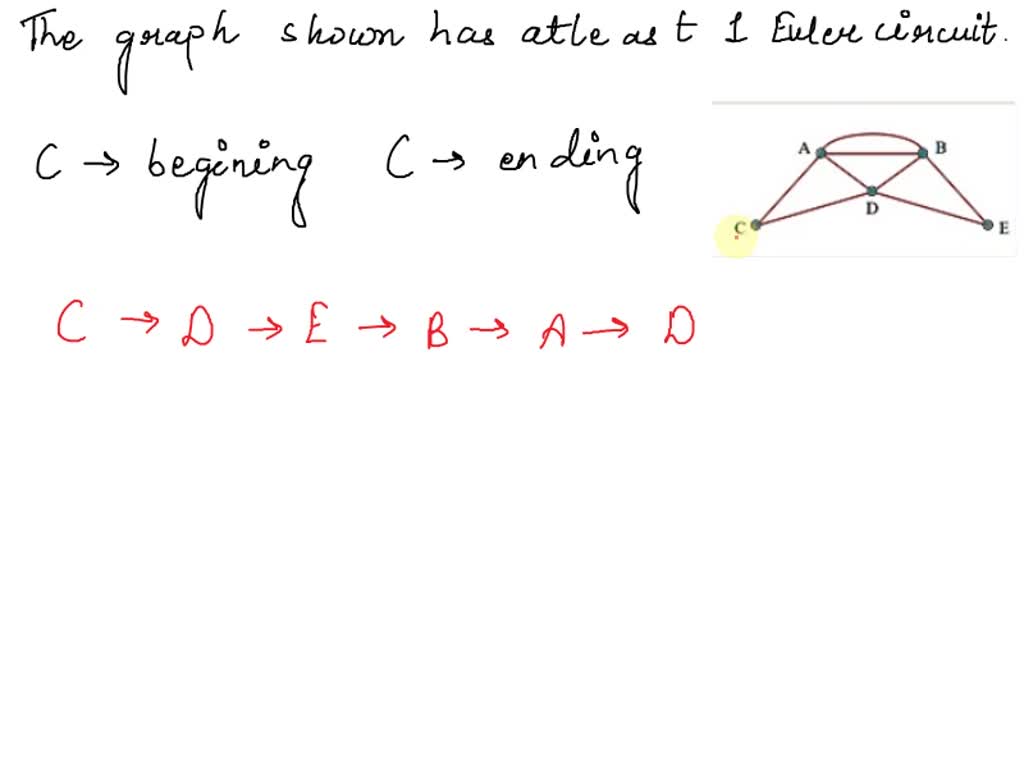 The graph shown has atleast 1 Euler circuit.
C → begining C → ending
A B
D
C E
C → D → E → B → A → D